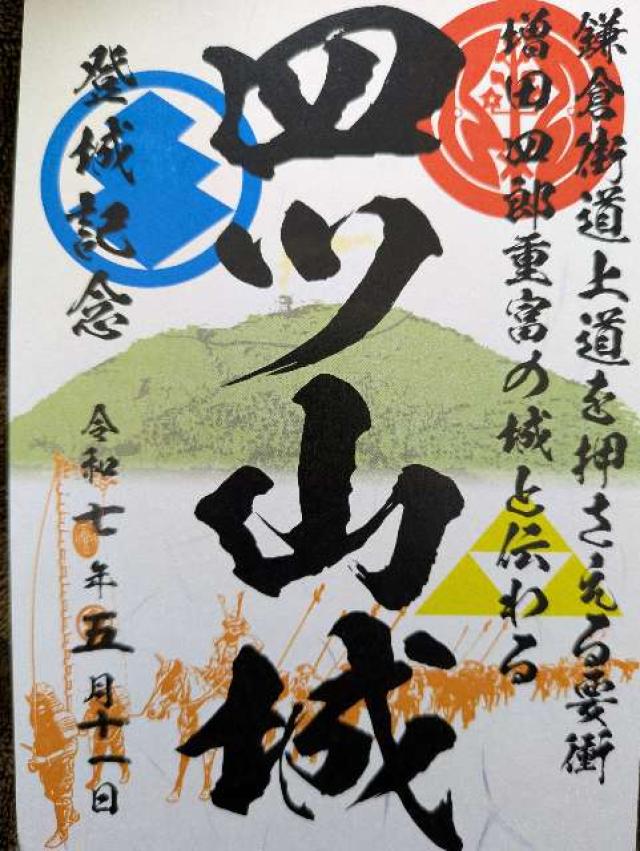 鎌倉街道上道を押さえる要衝
増田四郎重富の城と伝わる
四ツ山城
登城記念
令和七年五月十一日